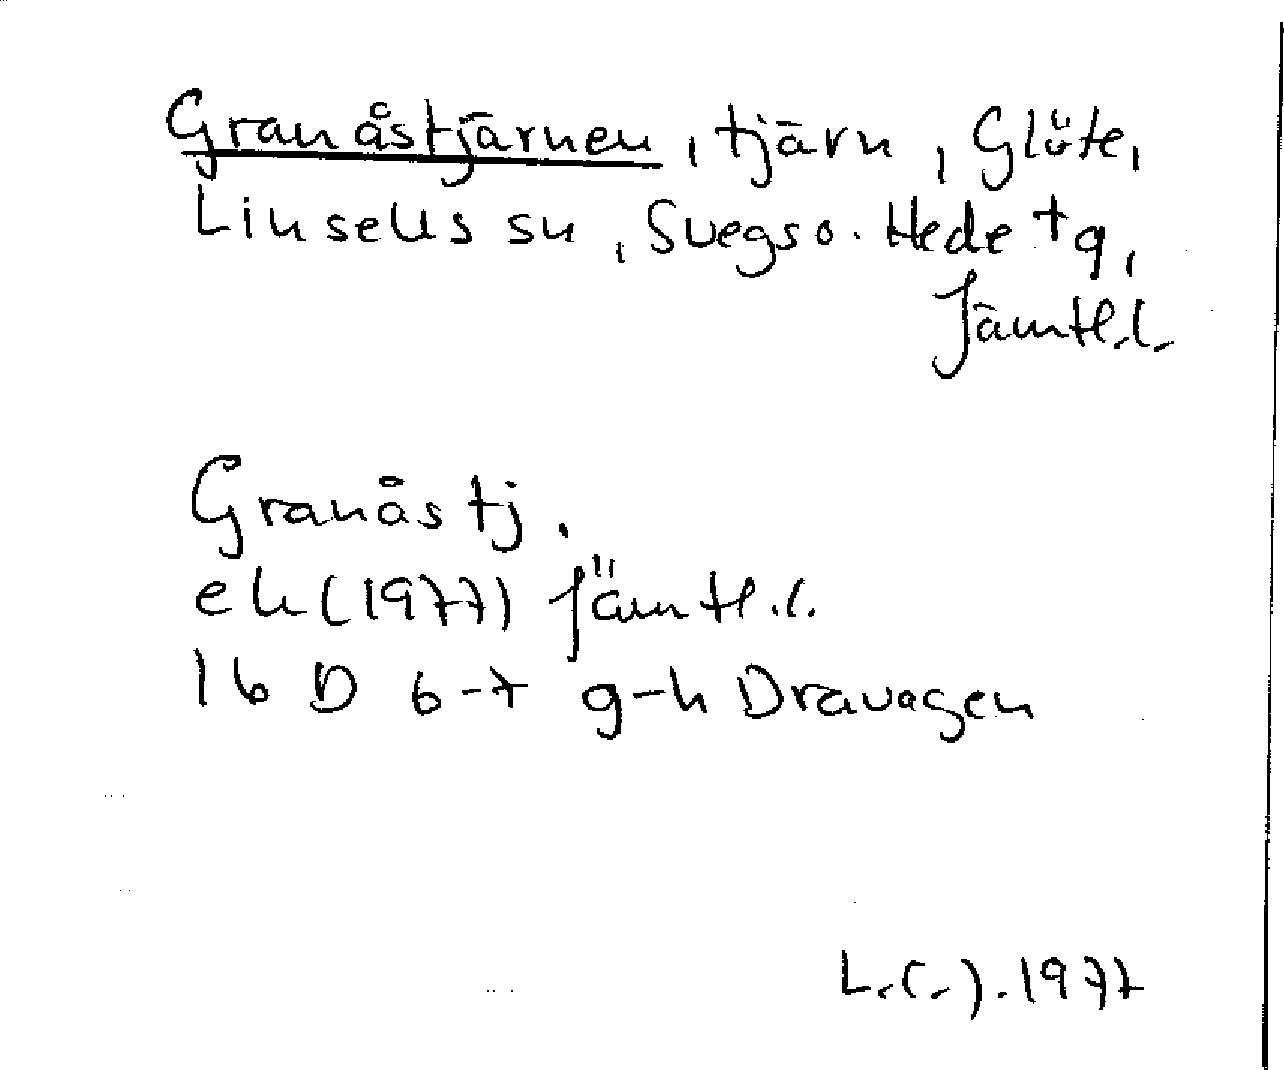 Granåstjärnen, tjärn, Glöte,
Linsells sn, Svegs o. Hede tg,
Jämtl.l.
Granåstj.
ek(1977) Jämtl.l.
16 D 6-7 g-h Dravagen
L.(-).1977